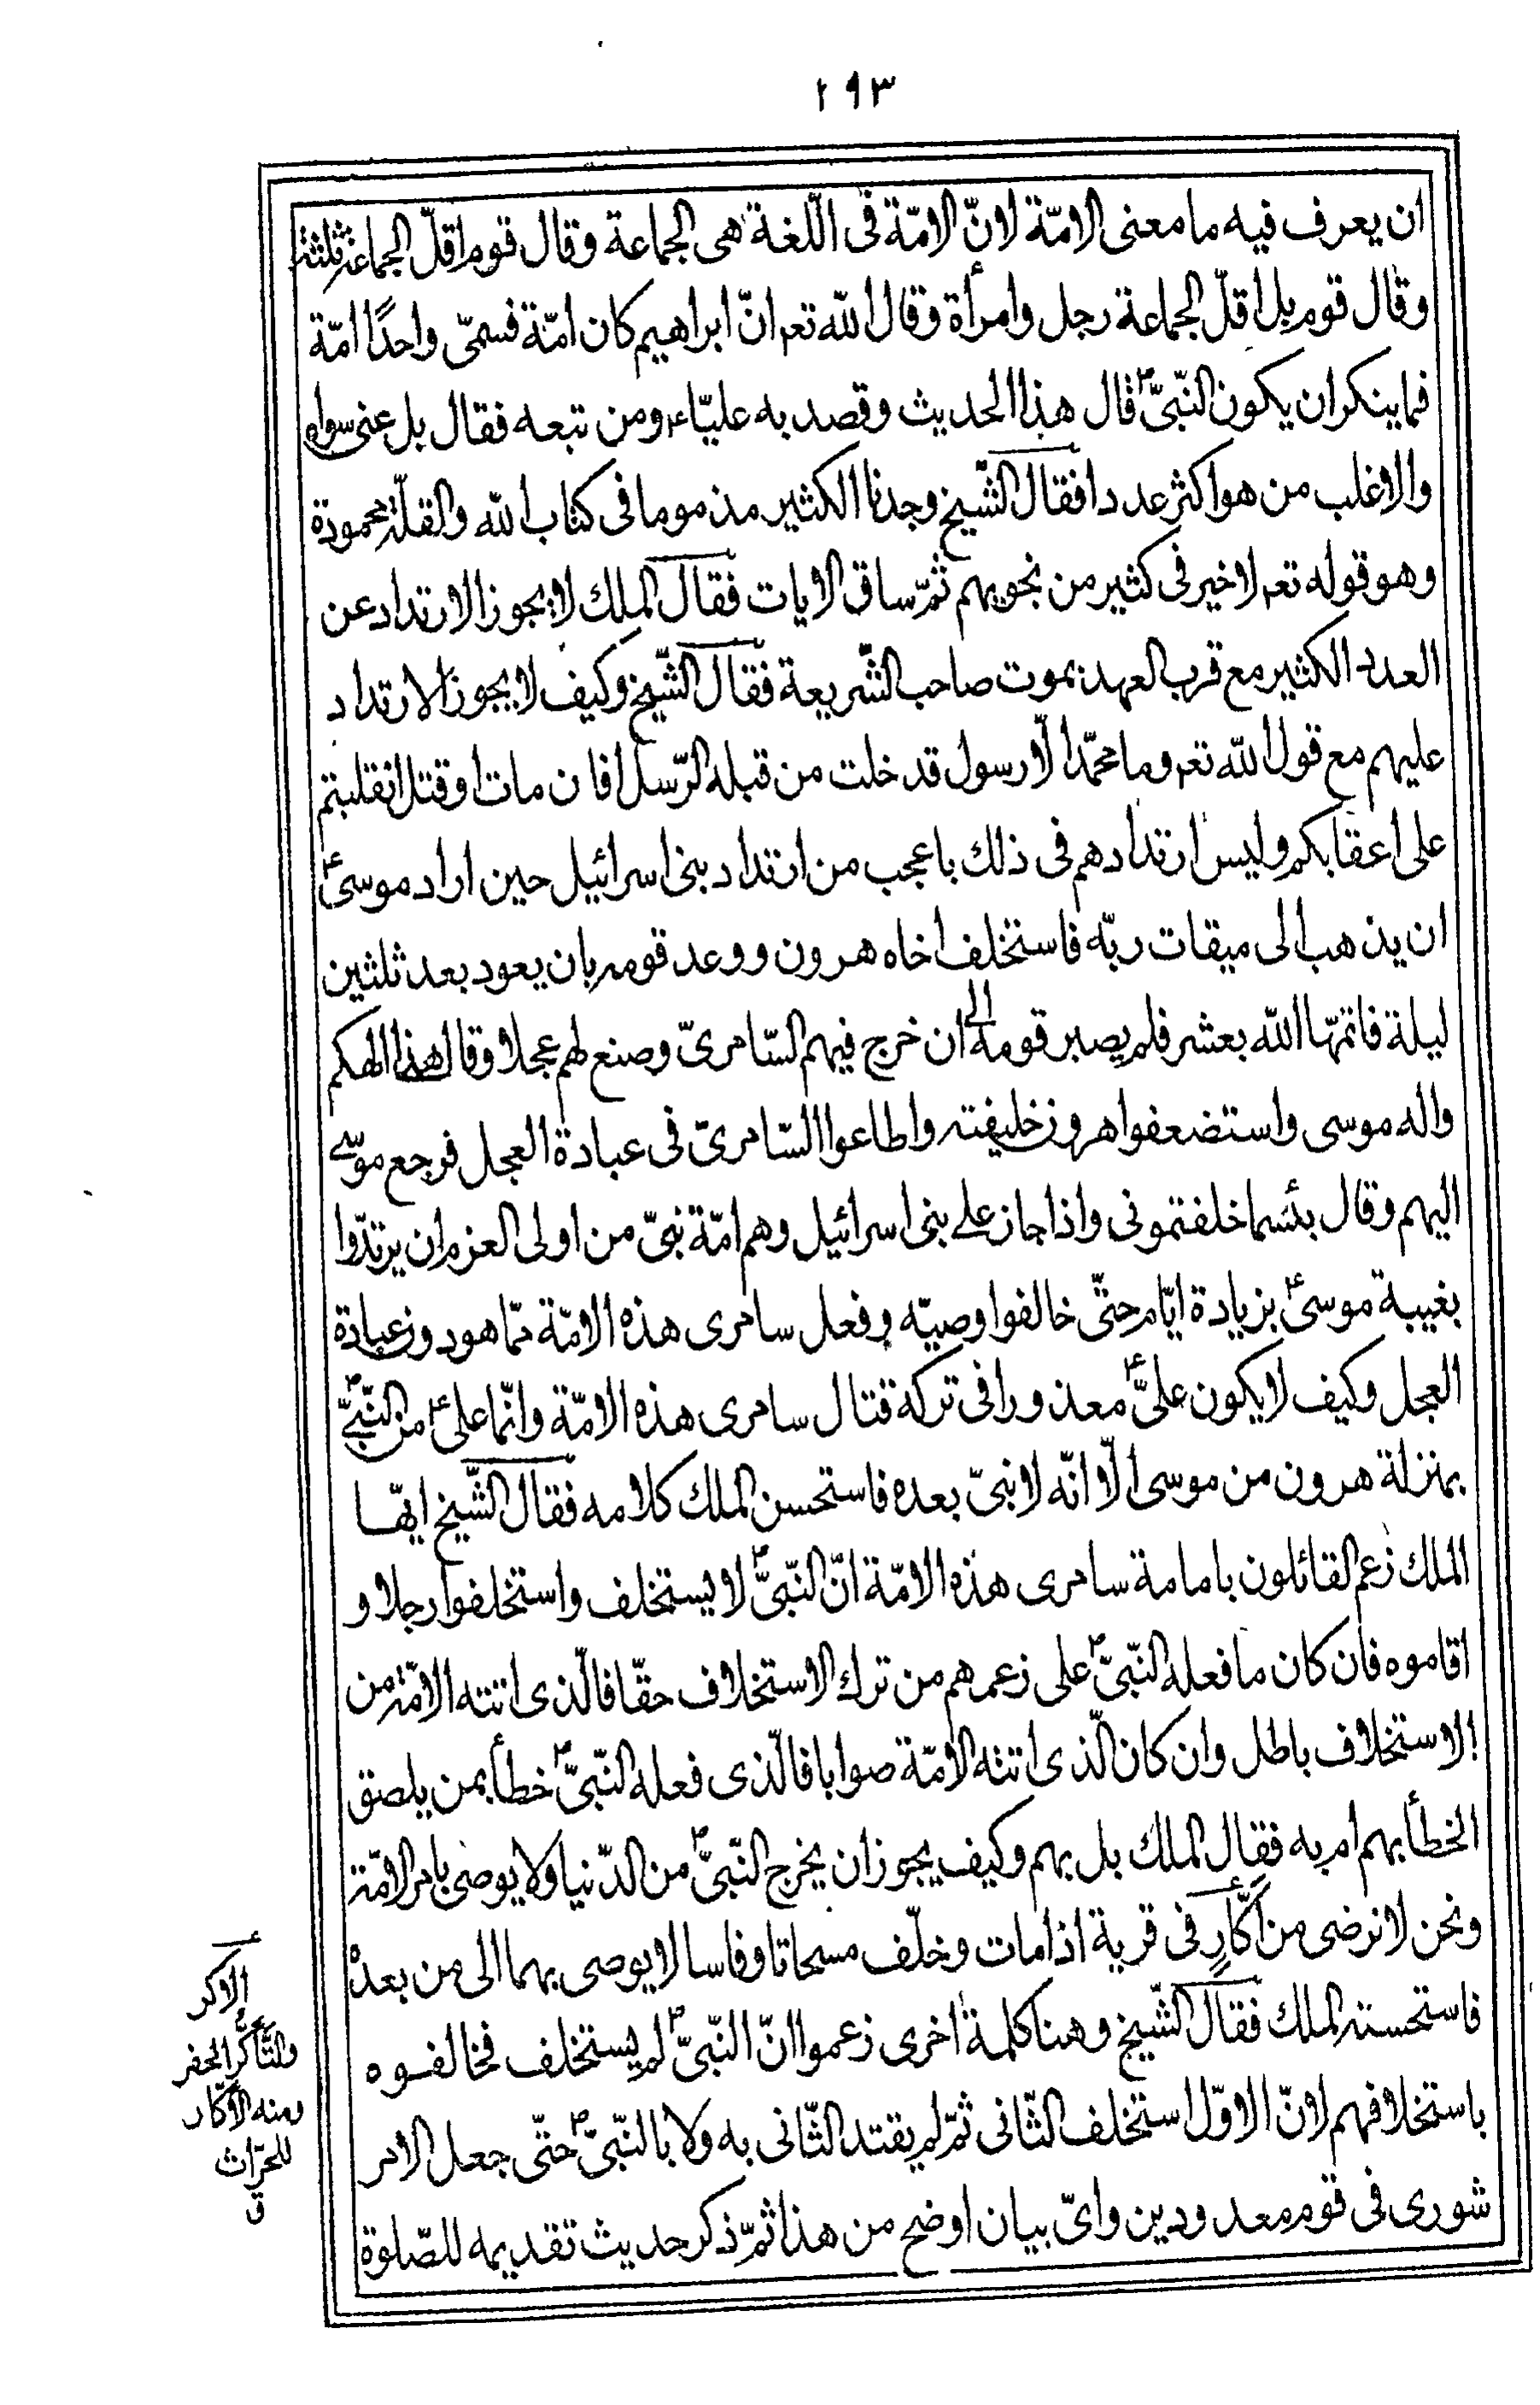 ٢٩٣
ان يعرف فيه ما معنى الامّة لانّ الامّة فى اللّغة هى الجماعة وقال قوم اقلّ الجماعة ثلثة
وقال قوم بل اقلّ الجماعة رجل وامرأة وقال الله تعه انّ ابراهيم كان امّة فسمّى واحدًا امّة
فما ينكر ان يكون النّبىّ ص قال هذا الحديث وقصد به عليّا ع ومن تبعه فقال بل عنى سواه
والاغلب من هو اكثر عددا فقال الشّيخ وجدنا الكثير مذموما فى كتاب الله والقلّة محمودة
وهو قوله تعه لا خير فى كثير من نجويهم ثمّ ساق الايات فقال الملك لا يجوز الارتداد عن
العدد الكثير مع قرب العهد بموت صاحب الشّريعة فقال الشّيخ وكيف لا يجوز الارتداد
عليهم مع قول الله تعه وما محمّد الّا رسول قد خلت من قبله الرّسل افان مات او قتل انقلبتم
على اعقابكم وليس ارتدادهم فى ذلك باعجب من ارتداد بنى اسرائيل حين اراد موسى ع
ان يذهب الى ميقات ربّه فاستخلف اخاه هرون ووعد قومه بان يعود بعد ثلثين
ليلة فاتمّها الله بعشر فلم يصبر قومه الى ان خرج فيهم السّامرىّ وصنع لهم عجلا وقال هذا الهكم
واله موسى واستضعفوا هرون خليفته واطاعوا السّامرىّ فى عبادة العجل فرجع موسى
اليهم وقال بئسما خلفتمونى واذا جاز على بنى اسرائيل وهم امّة نبىّ من اولى العزم ان يرتدّوا
بغيبة موسى ع بزيادة ايّام حتّى خالفوا وصيّه وفعل سامرى هذه الامّة ممّا هو دون عبادة
العجل وكيف لا يكون علىّ ع معذورا فى تركه قتال سامرى هذه الامّة وانّما على ع من النّبىّ ص
بمنزلة هرون من موسى الّا انّه لا نبىّ بعده فاستحسن الملك كلامه فقال الشّيخ ايّها
الملك زعم القائلون بامامة سامرى هذه الامّة انّ النّبىّ ص لا يستخلف واستخلفوا رجلا و
اقاموه فان كان ما فعله النّبىّ ص على زعمهم من ترك الاستخلاف حقّا فالّذى اتته الامّة من
الاستخلاف باطل وان كان الّذى اتته الامّة صوابا فالّذى فعله النّبىّ ص خطأ بمن يلصق
الخطأ بهم ام به فقال الملك بل بهم وكيف يجوز ان يخرج النّبىّ ص من الدّنيا ولا يوصى بامر الامّة
ونحن لا نرضى من اكّارٍ فى قرية اذا مات وخلّف مسحاتا وفاسا لا يوصى بهما الى من بعده
فاستحسنه الملك فقال الشّيخ وهنا كلمة اخرى زعموا انّ النّبىّ ص لم يستخلف فخالفوه
باستخلافهم لانّ الاوّل استخلف الثّانى ثمّ لم يقتد الثّانى به ولا بالنّبىّ ص حتّى جعل الامر
شورى فى قوم معدودين واىّ بيان اوضح من هذا ثمّ ذكر حديث تقديمه للصّلوة
الاكر
والتّأكّر الحفر
ومنه الاكّار
للحرّاث
ق